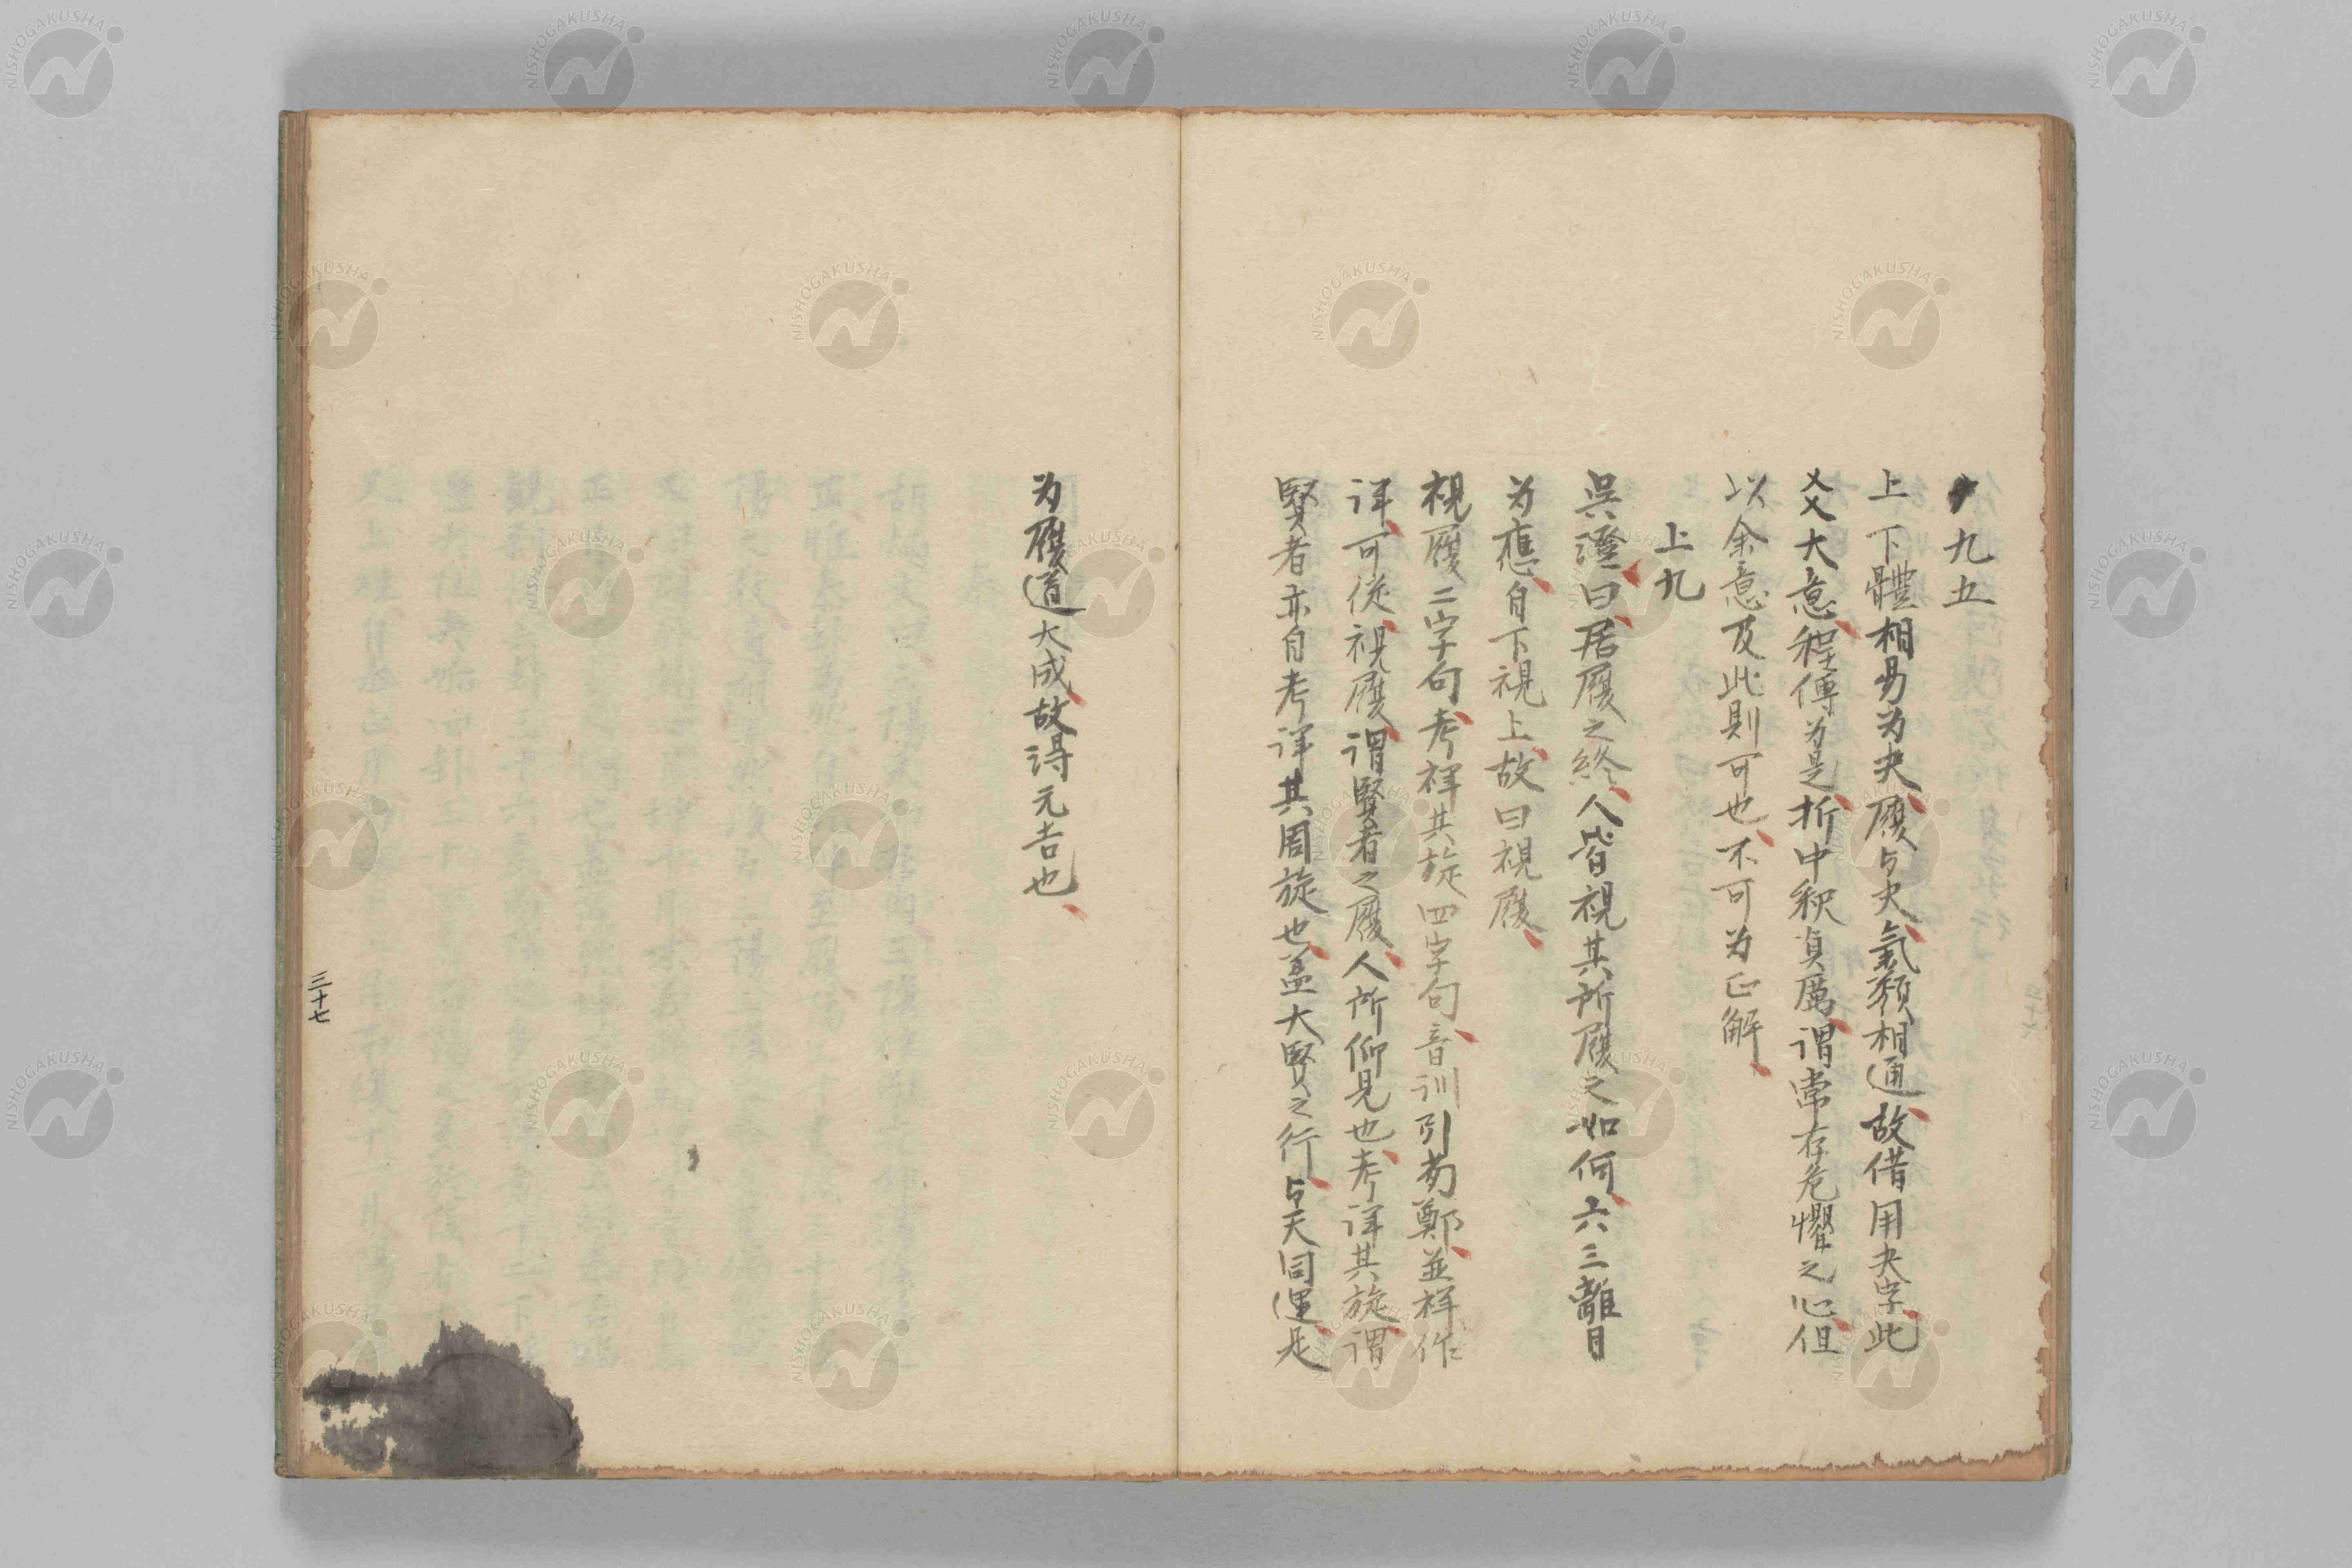 九五
上下體相易为夬、履与夬、氣類相通、故借用夬字、此
爻大意、程傳为是、折中釈貞厲、謂常存危懼之心、但
以余意及此則可也、不可为正解、
上九
吳澄曰、居履之終、人皆視其所履之如何、六三離目
为應、自下視上、故曰視履、
視履二字句、考祥其旋四字句、音訓引荀鄭、並祥作
詳、可従、視履、謂賢者之履、人所仰見也、考詳其旋、謂
賢者亦自考詳其周旋也、盖大賢之行、与天同運、是
为履道大成、故得元吉也、
三十七
NISHOGAKUSHA